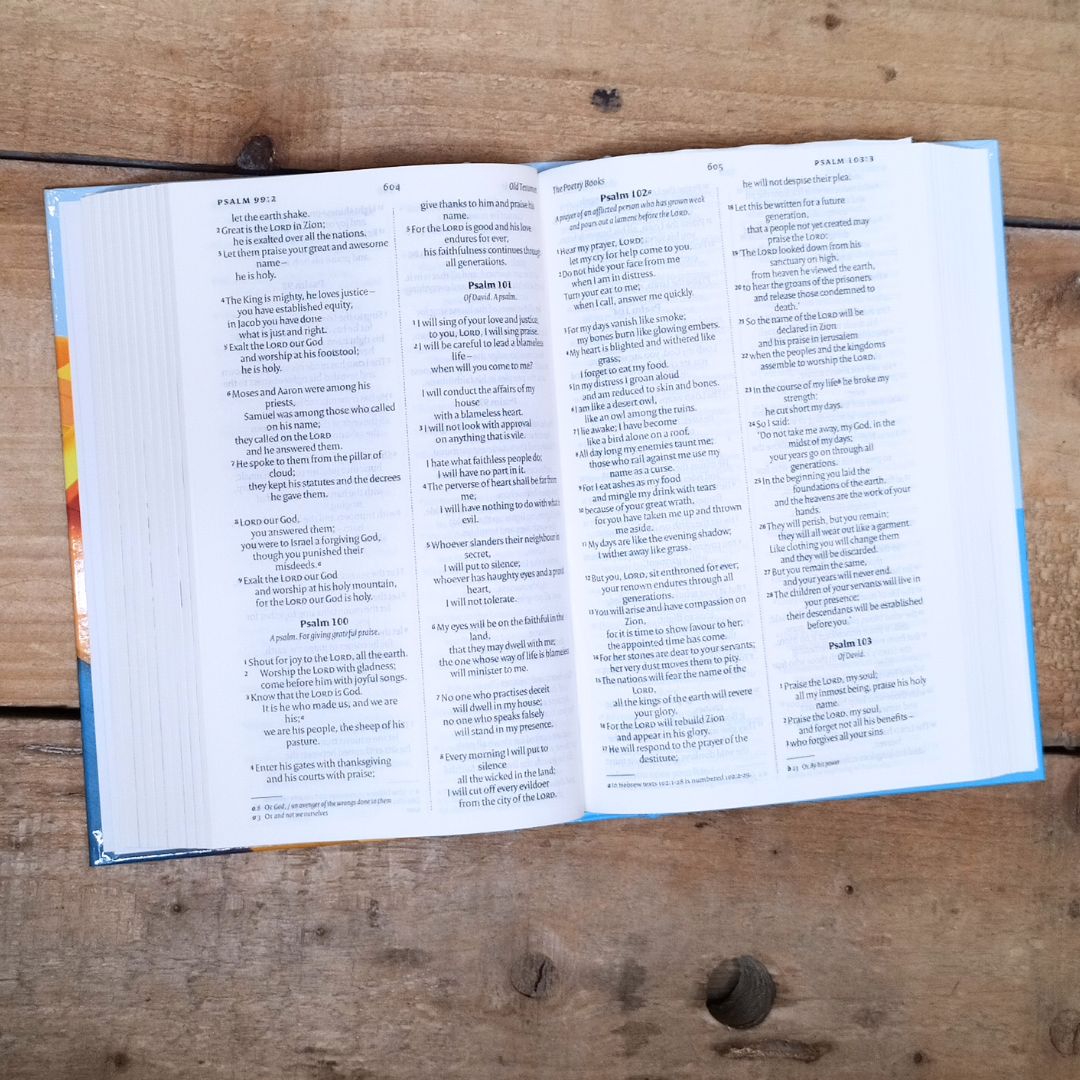 PSALM 99:2
604
Old Testament
let the earth shake.
2 Great is the LORD in Zion;
he is exalted over all the nations.
3 Let them praise your great and awesome
name –
he is holy.
4 The King is mighty, he loves justice –
you have established equity,
in Jacob you have done
what is just and right.
5 Exalt the LORD our God
and worship at his footstool;
he is holy.
6 Moses and Aaron were among his
priests,
Samuel was among those who called
on his name;
they called on the LORD
and he answered them.
7 He spoke to them from the pillar of
cloud;
they kept his statutes and the decrees
he gave them.
8 LORD our God,
you answered them;
you were to Israel a forgiving God,
though you punished their
misdeeds.a
9 Exalt the LORD our God
and worship at his holy mountain,
for the LORD our God is holy.
Psalm 100
A psalm. For giving grateful praise.
1 Shout for joy to the LORD, all the earth.
2 Worship the LORD with gladness;
come before him with joyful songs.
3 Know that the LORD is God.
It is he who made us, and we are
his;a
we are his people, the sheep of his
pasture.
4 Enter his gates with thanksgiving
and his courts with praise;
a 8 Or God, / an avenger of the wrongs done to them
a 3 Or and not we ourselves
give thanks to him and praise his
name.
5 For the LORD is good and his love
endures for ever;
his faithfulness continues through
all generations.
Psalm 101
Of David. A psalm.
1 I will sing of your love and justice;
to you, LORD, I will sing praise.
2 I will be careful to lead a blameless
life –
when will you come to me?
I will conduct the affairs of my
house
with a blameless heart.
3 I will not look with approval
on anything that is vile.
I hate what faithless people do;
I will have no part in it.
4 The perverse of heart shall be far from
me;
I will have nothing to do with what is
evil.
5 Whoever slanders their neighbour in
secret,
I will put to silence;
whoever has haughty eyes and a proud
heart,
I will not tolerate.
6 My eyes will be on the faithful in the
land,
that they may dwell with me;
the one whose way of life is blameless
will minister to me.
7 No one who practises deceit
will dwell in my house;
no one who speaks falsely
will stand in my presence.
8 Every morning I will put to
silence
all the wicked in the land;
I will cut off every evildoer
from the city of the LORD.
The Poetry Books
605
PSALM 103:3
Psalm 102a
A prayer of an afflicted person who has grown weak
and pours out a lament before the LORD.
1 Hear my prayer, LORD;
let my cry for help come to you.
2 Do not hide your face from me
when I am in distress.
Turn your ear to me;
when I call, answer me quickly.
3 For my days vanish like smoke;
my bones burn like glowing embers.
4 My heart is blighted and withered like
grass;
I forget to eat my food.
5 In my distress I groan aloud
and am reduced to skin and bones.
6 I am like a desert owl,
like an owl among the ruins.
7 I lie awake; I have become
like a bird alone on a roof.
8 All day long my enemies taunt me;
those who rail against me use my
name as a curse.
9 For I eat ashes as my food
and mingle my drink with tears
10 because of your great wrath,
for you have taken me up and thrown
me aside.
11 My days are like the evening shadow;
I wither away like grass.
12 But you, LORD, sit enthroned for ever;
your renown endures through all
generations.
13 You will arise and have compassion on
Zion,
for it is time to show favour to her;
the appointed time has come.
14 For her stones are dear to your servants;
her very dust moves them to pity.
15 The nations will fear the name of the
LORD,
all the kings of the earth will revere
your glory.
16 For the LORD will rebuild Zion
and appear in his glory.
17 He will respond to the prayer of the
destitute;
a In Hebrew texts 102:1-28 is numbered 102:2-29.
he will not despise their plea.
18 Let this be written for a future
generation,
that a people not yet created may
praise the LORD:
19 'The LORD looked down from his
sanctuary on high,
from heaven he viewed the earth,
20 to hear the groans of the prisoners
and release those condemned to
death.'
21 So the name of the LORD will be
declared in Zion
and his praise in Jerusalem
22 when the peoples and the kingdoms
assemble to worship the LORD.
23 In the course of my lifeb he broke my
strength;
he cut short my days.
24 So I said:
'Do not take me away, my God, in the
midst of my days;
your years go on through all
generations.
25 In the beginning you laid the
foundations of the earth,
and the heavens are the work of your
hands.
26 They will perish, but you remain;
they will all wear out like a garment.
Like clothing you will change them
and they will be discarded.
27 But you remain the same,
and your years will never end.
28 The children of your servants will live in
your presence;
their descendants will be established
before you.'
Psalm 103
Of David.
1 Praise the LORD, my soul;
all my inmost being, praise his holy
name.
2 Praise the LORD, my soul,
and forget not all his benefits –
3 who forgives all your sins
b 23 Or By his power